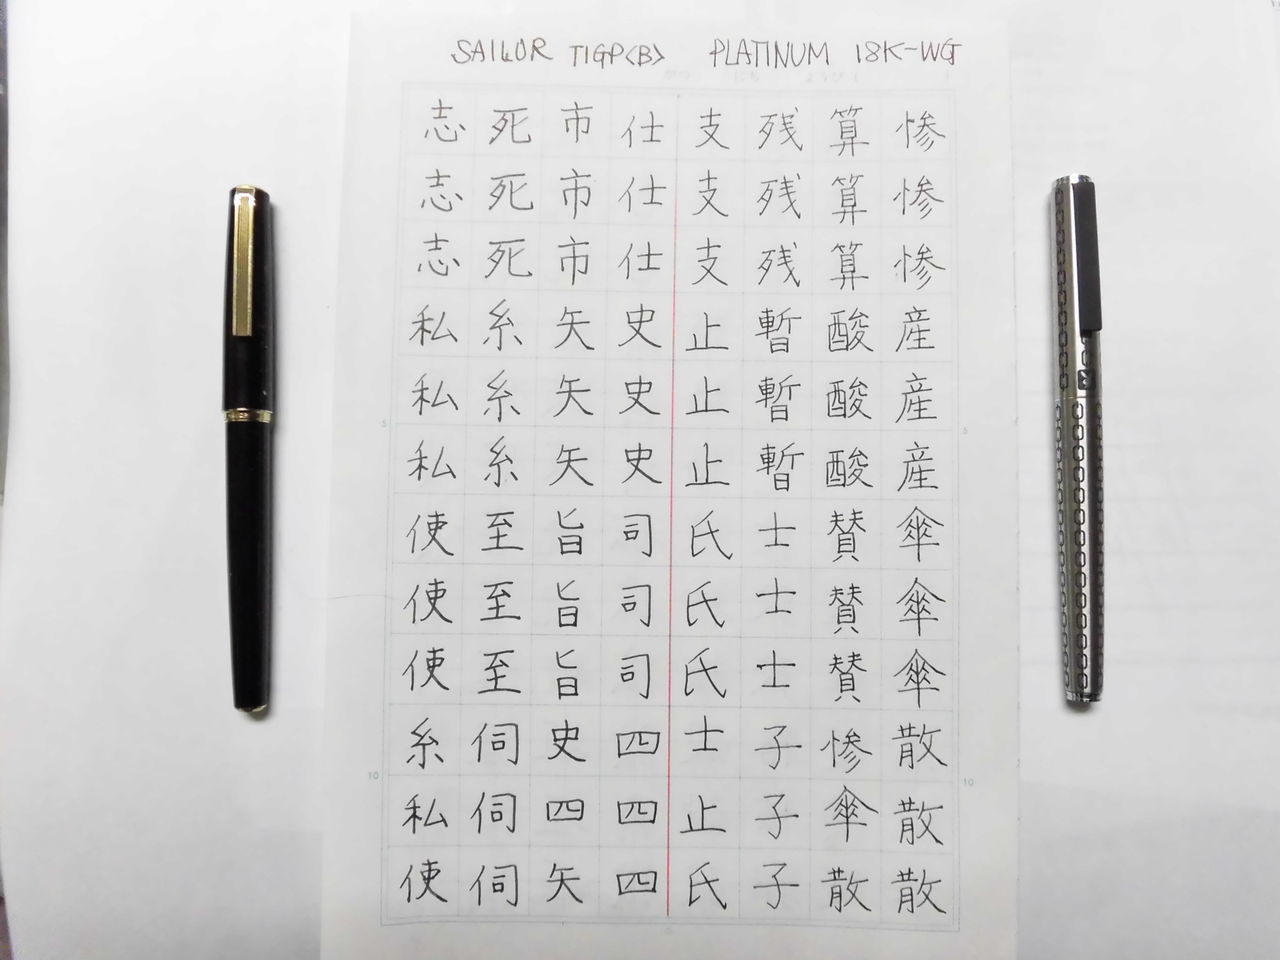 SAILOR TIGP<B> PLATINUM 18K-WG
惨惨惨産産産傘傘傘散散散
算算算酸酸酸賛賛賛惨傘散
残残残暫暫暫士士士子子子
支支支止止止氏氏氏士止氏
仕仕仕史史史司司司四四四
市市市矢矢矢旨旨旨史四矢
死死死糸糸糸至至至伺伺伺
志志志私私私使使使糸私使
5
10
5
10